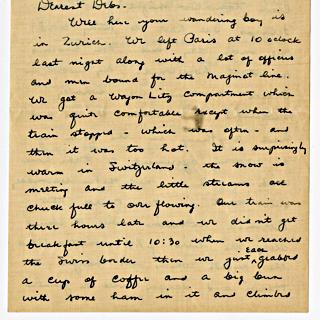 Dearest Debs.
Well here your wandering boy is
in Zurich. We left Paris at 10 oclock
last night along with a lot of officers
and men bound for the Maginot line.
We got a Wagon Lity compartment which
was quite comfortable except when the
train stopped - which was often - and
then it was too hot. It is surprisingly
warm in Switzerland - the snow is
melting and the little streams are
chuck full to over flowing. Our train was
three hours late and we didn't get
breakfast until 10:30 when we reached
the Swiss border then we just each grabbed
a cup of coffee and a big bun
with some ham in it and climbed